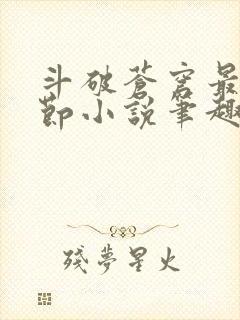 斗破蒼穹最
節小說筆趣
殘夢星火